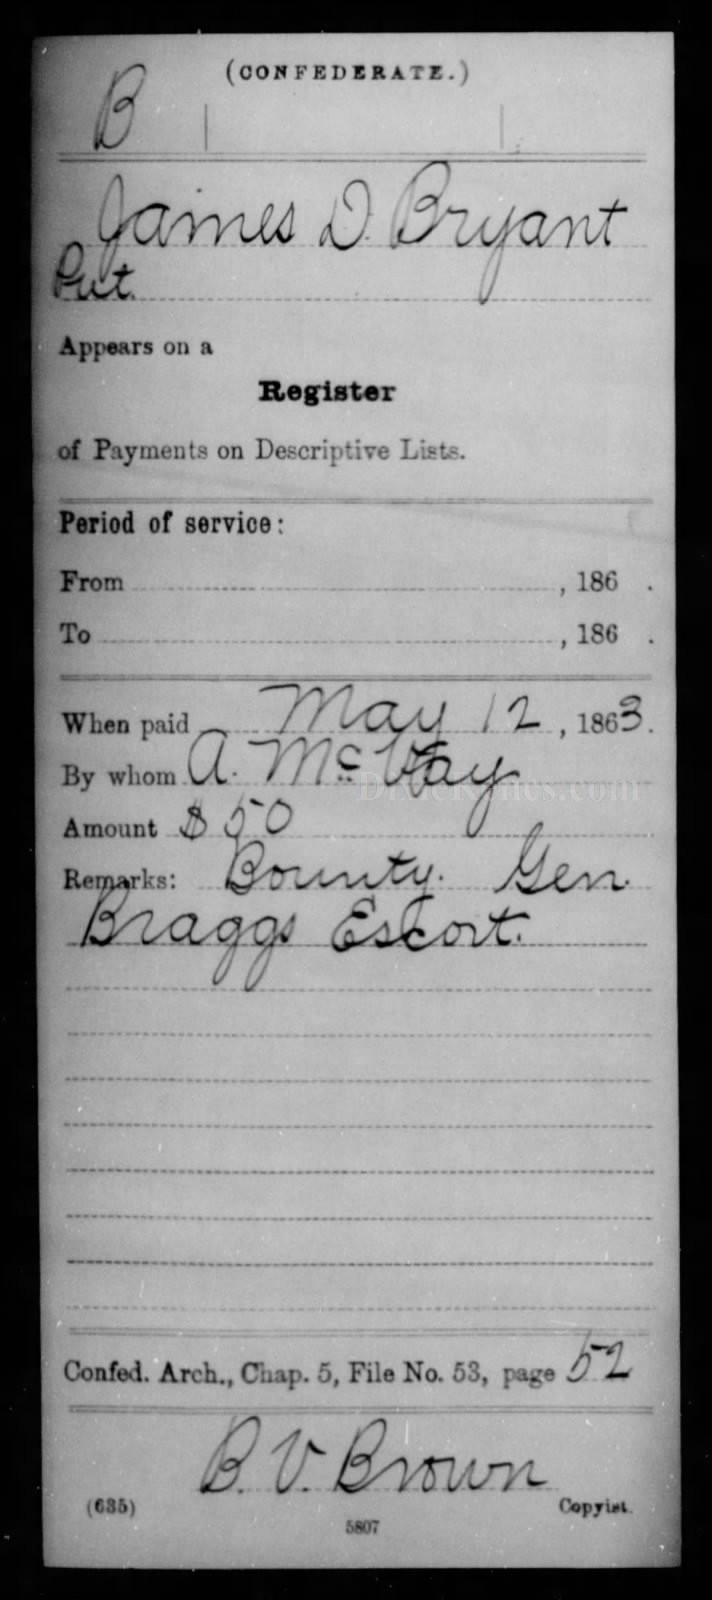 (CONFEDERATE.)
B
James D. Bryant
Pvt.
Appears on a
Register
of Payments on Descriptive Lists.
Period of service:
From , 186 .
To , 186 .
When paid May 12, 1863.
By whom A. McVay
Amount $50
Remarks: Bounty. Gen.
Braggs Escort.
Confed. Arch., Chap. 5, File No. 53, page 52
B. V. Brown
(635) Copyist.
5807